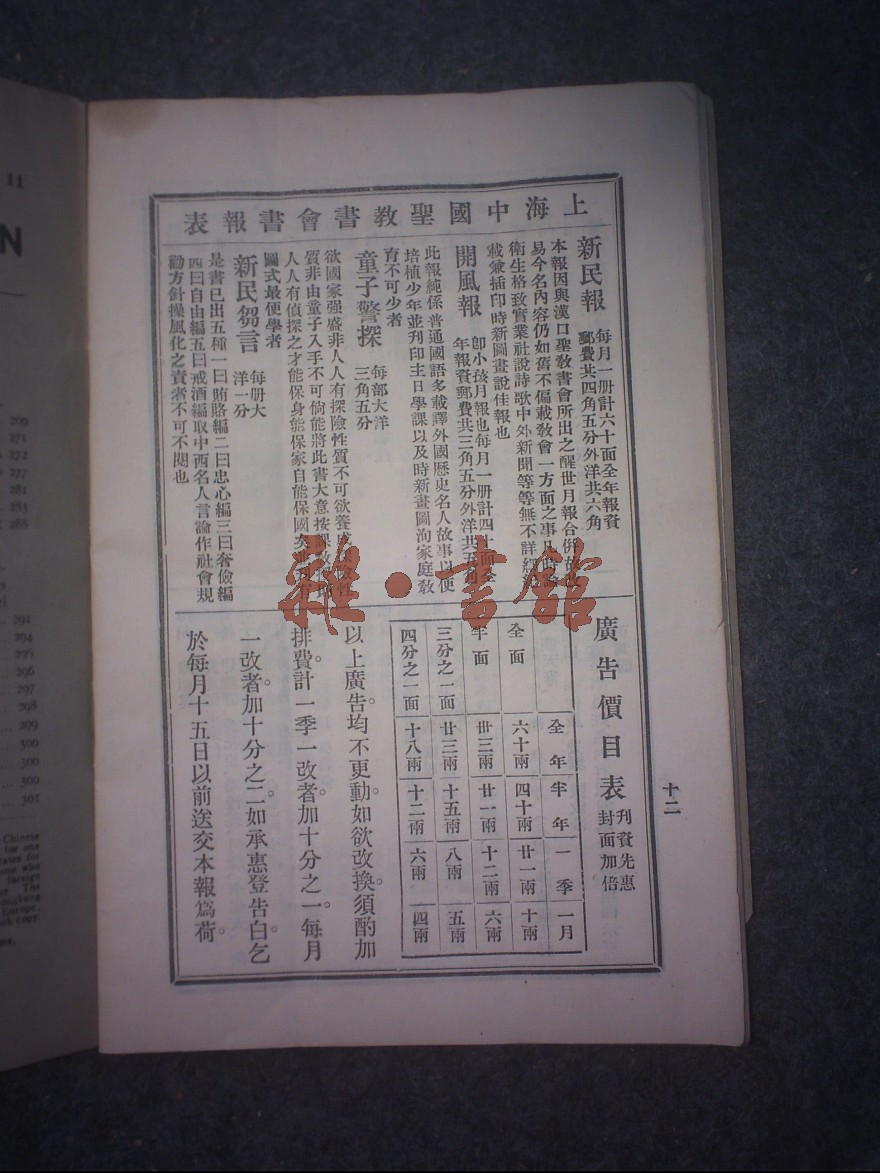 上海中國聖教書會書報表
新民報
每月一册計六十面全年報資
郵費共四角五分外洋共六角
本報因與漢口聖教書會所出之醒世月報合併
易今名內容仍如舊不偏載教會一方面之事凡時論
衛生格致實業社說詩歌中外新聞等等無不詳
載兼插印時新圖畫說佳報也
開風報
卽小孩月報也每月一册計四十面全
年報資郵費共三角五分外洋共五角
此報純係普通國語多載譯外國歷史名人故事以便
培植少年並刋印主日學課以及時新畫圖洵家庭教
育不可少者
童子警探
每部大洋
三角五分
欲國家强盛非人人有探險性質不可欲養成探險性
質非由童子入手不可倘能將此書大意按課教
人人有偵探之才能保身能保家自能保國矣
圖式最便學者
新民芻言
每册大
洋一分
是書已出五種一曰賄賂編二曰忠心編三曰奢儉編
四曰自由編五曰戒酒編取中西名人言論作社會規
勸方針操風化之責者不可不閱也
廣告價目表
刋資先惠
封面加倍
全年 半年 一季 一月
全面 六十兩 四十兩 廿一兩 十兩
半面 卅三兩 廿一兩 十二兩 六兩
三分之一面 廿三兩 十五兩 八兩 五兩
四分之一面 十八兩 十二兩 六兩 四兩
以上廣告均不更動。如欲改換須酌加
排費。計一季一改者。加十分之一。每月
一改者加十分之二。如承惠登告白。乞
於每月十五日以前送交本報爲荷。
十二
雜·書館
11
N
269
271
272
277
281
283
288
291
294
296
297
298
299
300
300
300
301
Chinese
for one
ates for
one who
foreign
The
Europe,